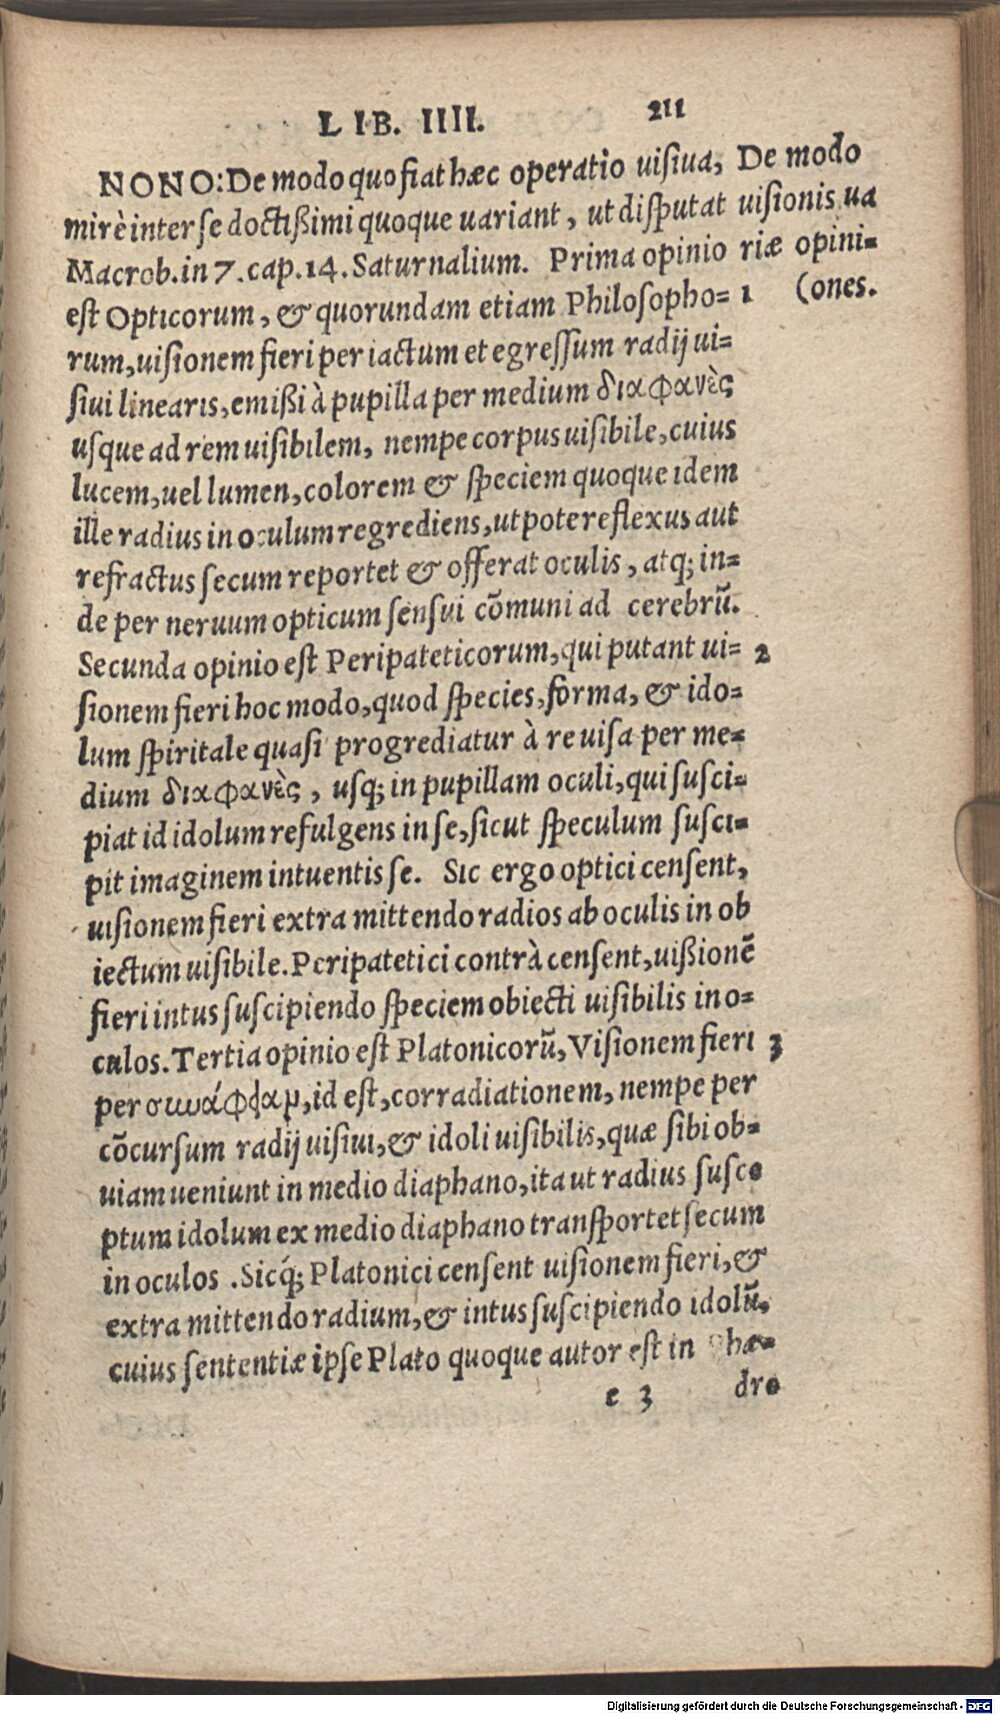 LIB. IIII. 211
NONO: De modo quo fiat hæc operatio uisiua, De modo
mirè inter se doctißimi quoque uariant, ut disputat uisionis ua
Macrob. in 7. cap. 14. Saturnalium. Prima opinio riæ opini=
est Opticorum, & quorundam etiam Philosopho= 1 (ones.
rum, uisionem fieri per iactum et egressum radij ui=
siui linearis, emißi à pupilla per medium διαφανὲς
usque ad rem uisibilem, nempe corpus uisibile, cuius
lucem, uel lumen, colorem & speciem quoque idem
ille radius in oculum regrediens, utpote reflexus aut
refractus secum reportet & offerat oculis, atq; in=
de per neruum opticum sensui cõmuni ad cerebrũ.
Secunda opinio est Peripateticorum, qui putant ui= 2
sionem fieri hoc modo, quod species, forma, & ido=
lum spiritale quasi progrediatur à re uisa per me=
dium διαφανὲς, usq; in pupillam oculi, qui susci=
piat id idolum refulgens in se, sicut speculum susci=
pit imaginem intuentis se. Sic ergo optici censent,
uisionem fieri extra mittendo radios ab oculis in ob
iectum uisibile. Peripatetici contrà censent, uißionẽ
fieri intus suscipiendo speciem obiecti uisibilis in o=
culos. Tertia opinio est Platonicorũ, Visionem fieri 3
per id est, corradiationem, nempe per
cõcursum radij uisiui, & idoli uisibilis, quæ sibi ob=
uiam ueniunt in medio diaphano, ita ut radius susce
ptum idolum ex medio diaphano transportet secum
in oculos. Sicq́; Platonici censent uisionem fieri, &
extra mittendo radium, & intus suscipiendo idolũ,
cuius sententiæ ipse Plato quoque autor est in Phæ=
e 3 dro
Digitalisierung gefördert durch die Deutsche Forschungsgemeinschaft - DFG